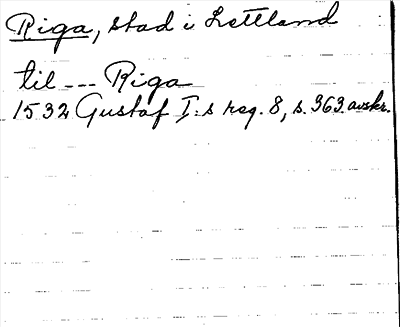 Riga, stad i Lettland
til --- Riga
1532 Gustaf I:s reg. 8, s. 363. avskr.